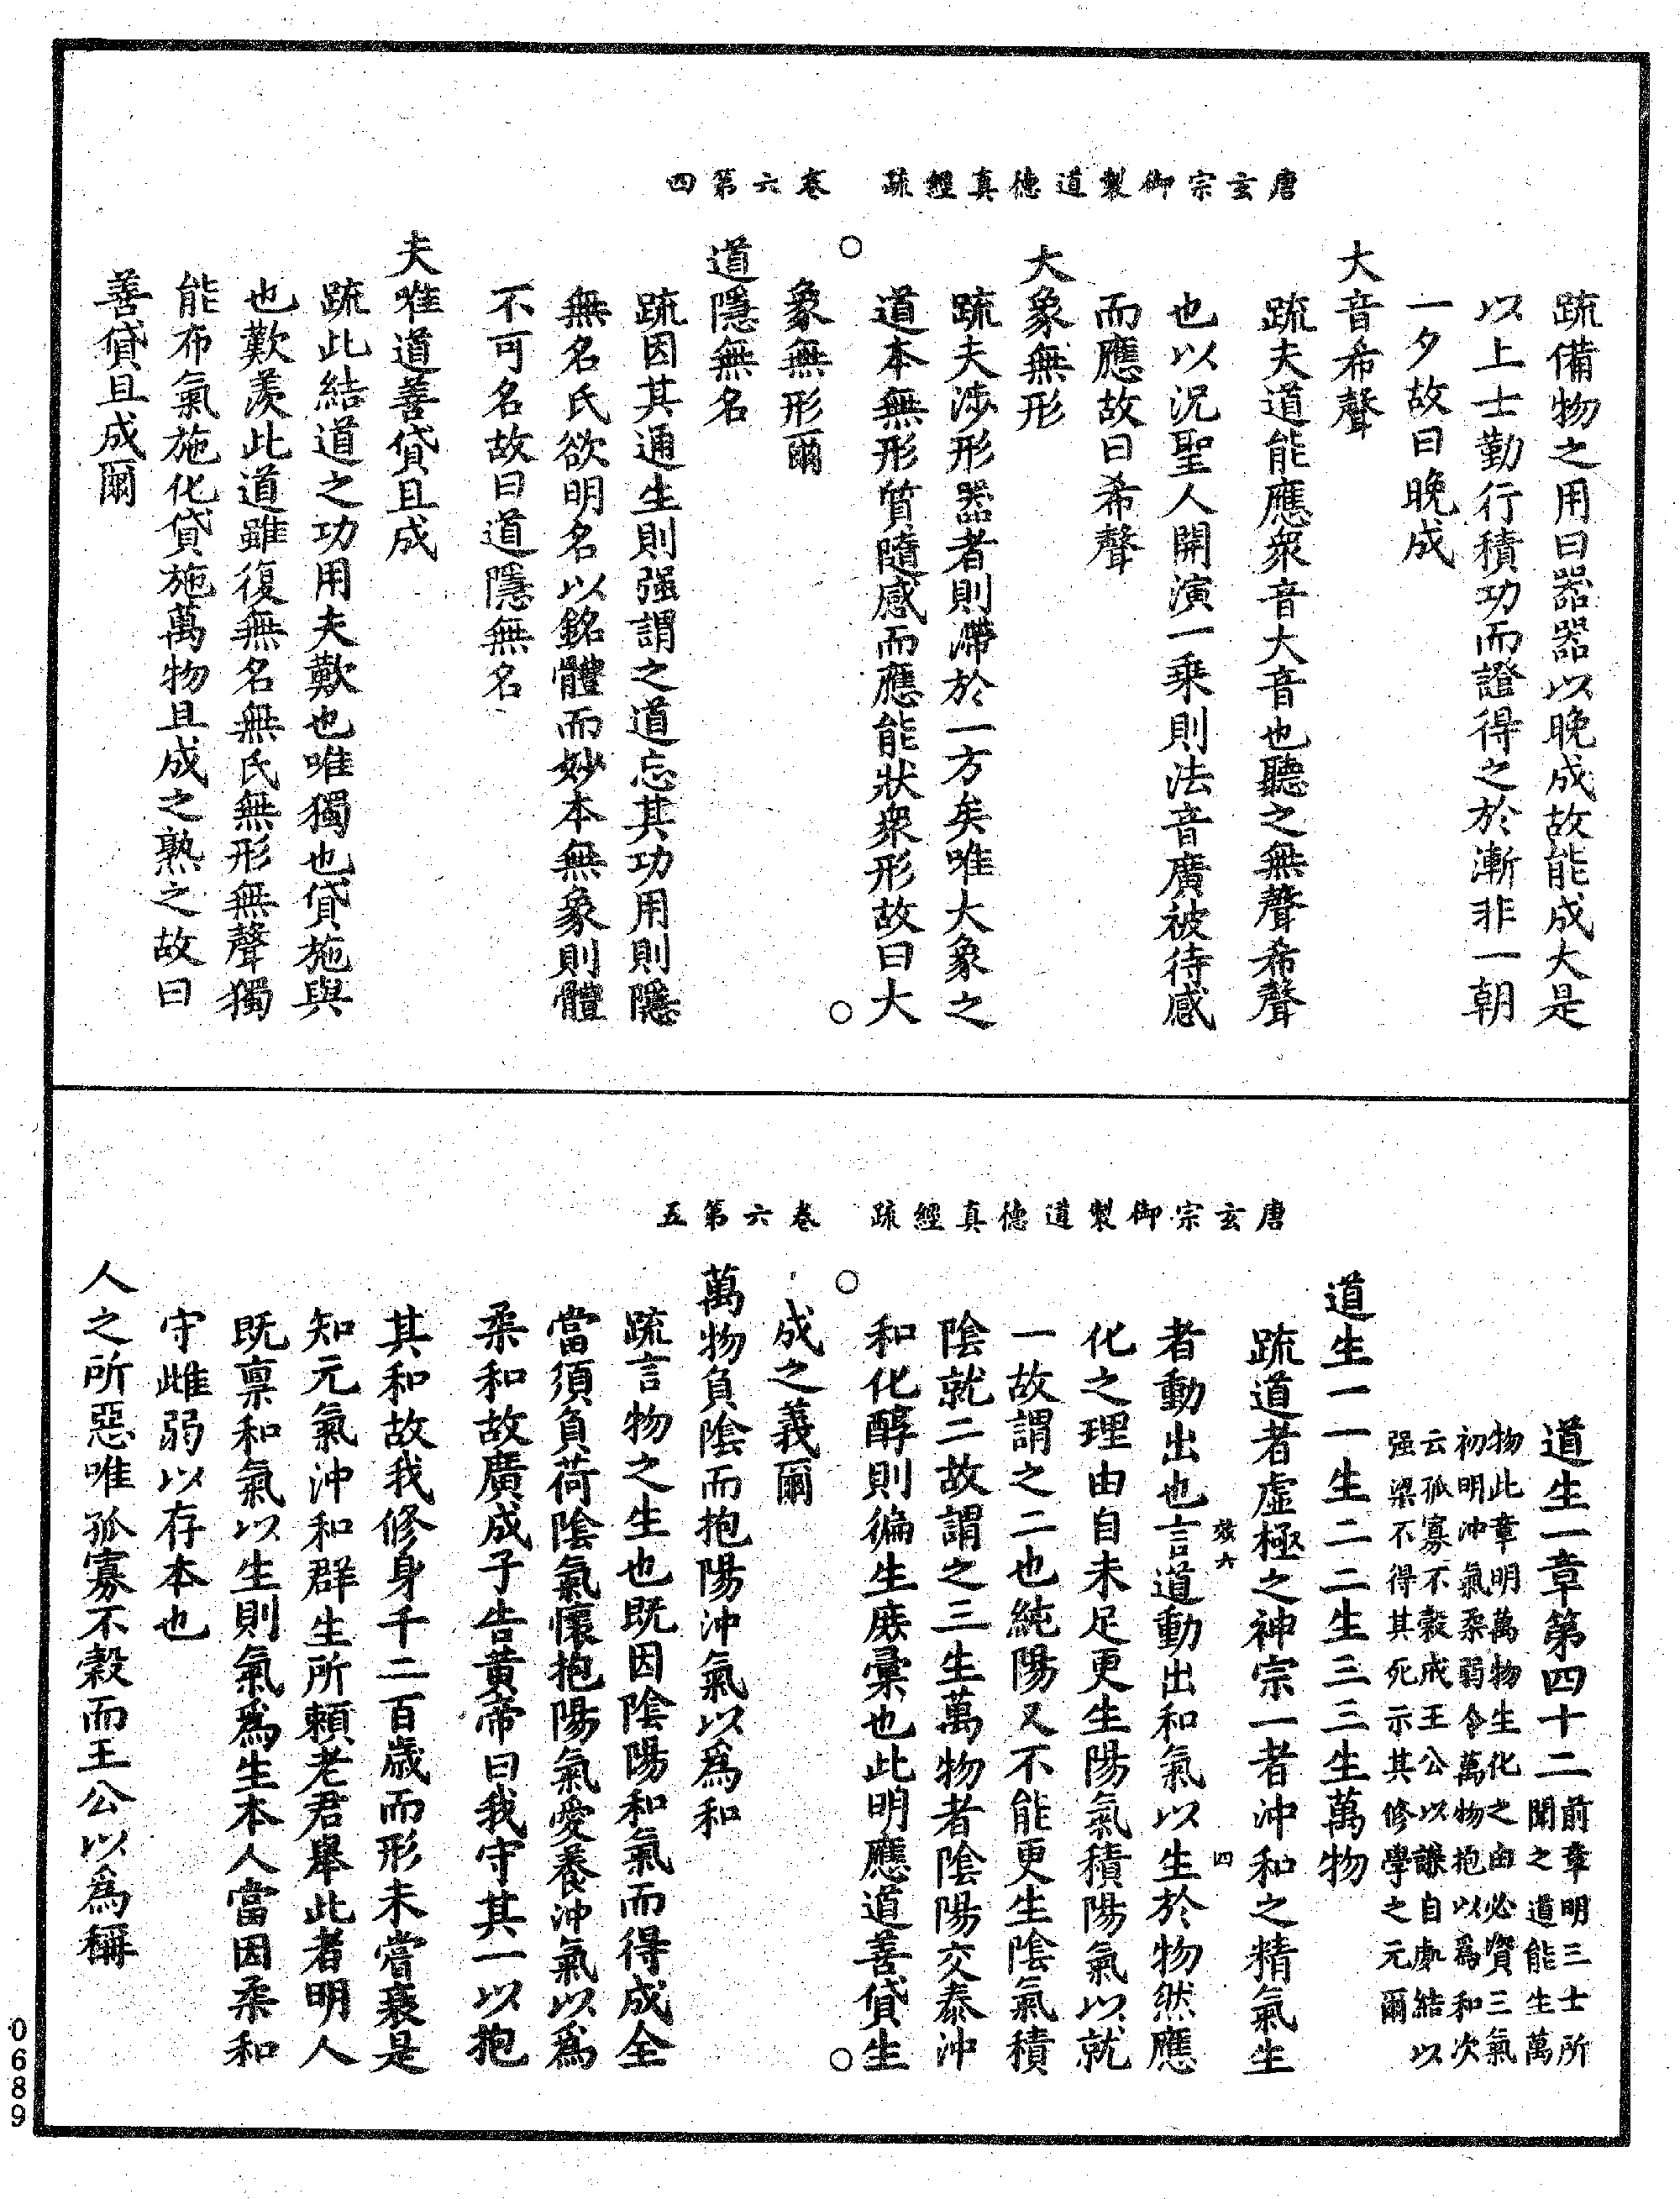 唐玄宗御製道德真經疏　卷六第四
疏備物之用曰器器以晚成故能成大是
以上士勤行積功而證得之於漸非一朝
一夕故曰晚成
大音希聲
疏夫道能應衆音大音也聽之無聲希聲
也以況聖人開演一乗則法音廣被待感
而應故曰希聲
大象無形
疏夫涉形器者則滯於一方矣唯大象之
道本無形質隨感而應能狀衆形故曰大
象無形爾
道隱無名
疏因其通生則强謂之道忘其功用則隱
無名氏欲明名以銘體而妙本無象則體
不可名故曰道隱無名
夫唯道善貸且成
疏此結道之功用夫歎也唯獨也貸施與
也歎羨此道雖復無名無氏無形無聲獨
能布氣施化貸施萬物且成之熟之故曰
善貸且成爾
唐玄宗御製道德真經疏　卷六第五
道生一章第四十二
前章明三士所
聞之道能生萬
物此章明萬物生化之由必資三氣
初明沖氣柔弱令萬物抱以爲和次
云孤寡不穀戒王公以謙自處結以
强梁不得其死示其修學之元爾
道生一一生二二生三三生萬物
疏道者虛極之神宗一者沖和之精氣生
效六　四
者動出也言道動出和氣以生於物然應
化之理由自未足更生陽氣積陽氣以就
一故謂之二也純陽又不能更生陰氣積
陰就二故謂之三生萬物者陰陽交泰沖
和化醇則徧生庶彙也此明應道善貸生
成之義爾
萬物負陰而抱陽沖氣以爲和
疏言物之生也既因陰陽和氣而得成全
當須負荷陰氣懷抱陽氣愛養沖氣以爲
柔和故廣成子告黃帝曰我守其一以抱
其和故我修身千二百歲而形未嘗衰是
知元氣沖和群生所賴老君舉此者明人
既禀和氣以生則氣爲生本人當因柔和
守雌弱以存本也
人之所惡唯孤寡不穀而王公以爲稱
0689